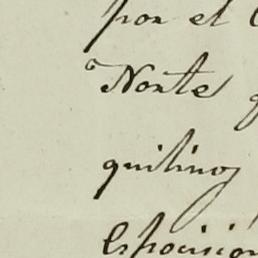 por el
Norte
quilinos
Esposición